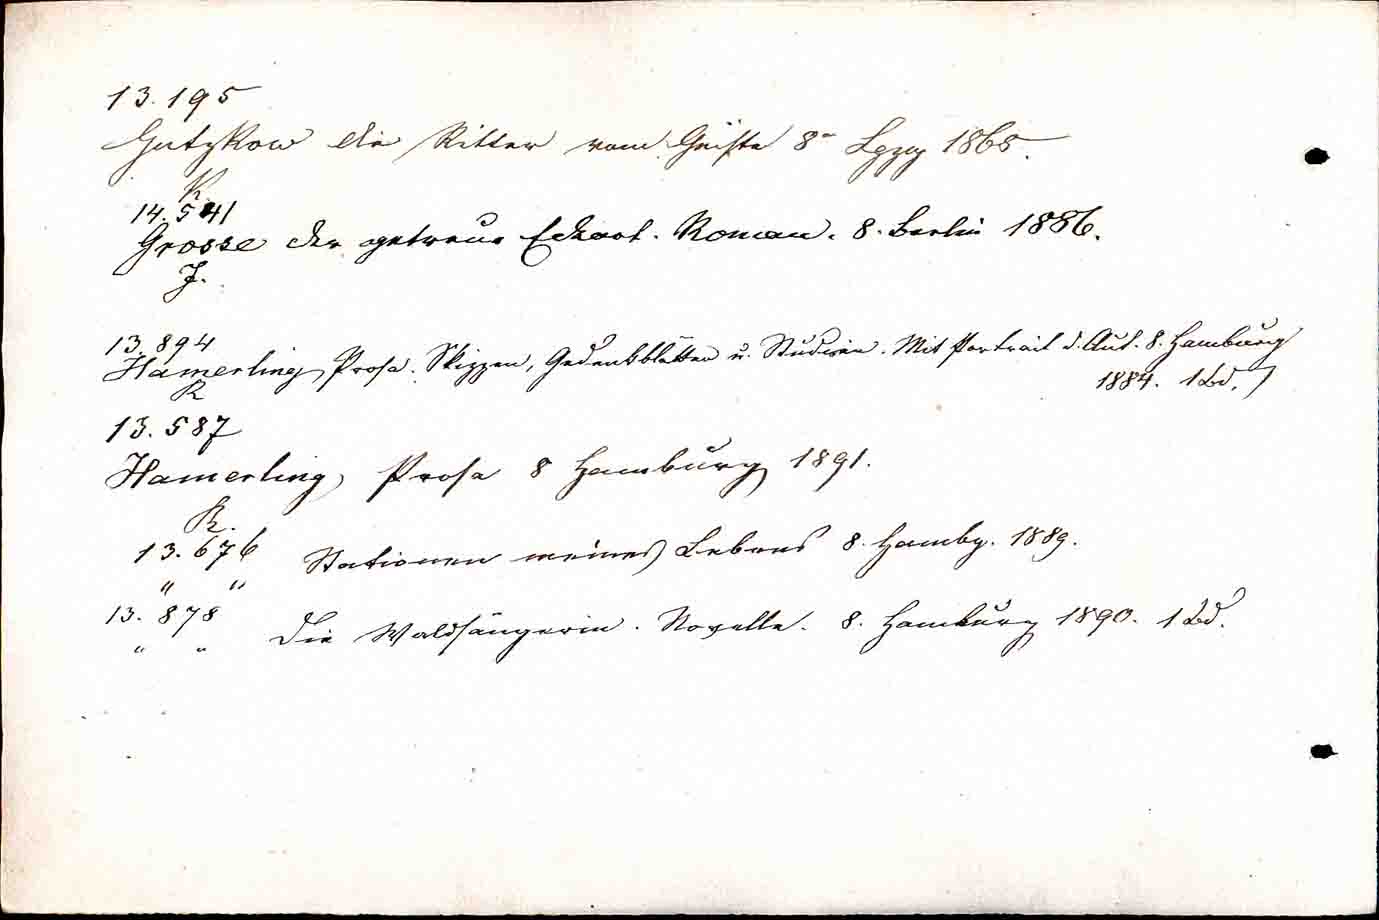 13.195
Gutzkow die Ritter vom Geiste 8° Lpzg 1865.
K
14.541
Grosse der getreue Eckart. Roman. 8. Berlin 1886.
J.
13.894
Hamerling, Prosa. Skizzen, Gedenkblätter u. Studien. Mit Portrait d. Aut. 8. Hamburg
R
1884. 1 Bd.
13.587
Hamerling, Prosa 8 Hamburg 1891.
R.
13.676 Stationen meines Lebens 8. Hambg. 1889.
" "
13.878 Die Waldsängerin. Novelle. 8. Hamburg 1890. 1 Bd.
" "